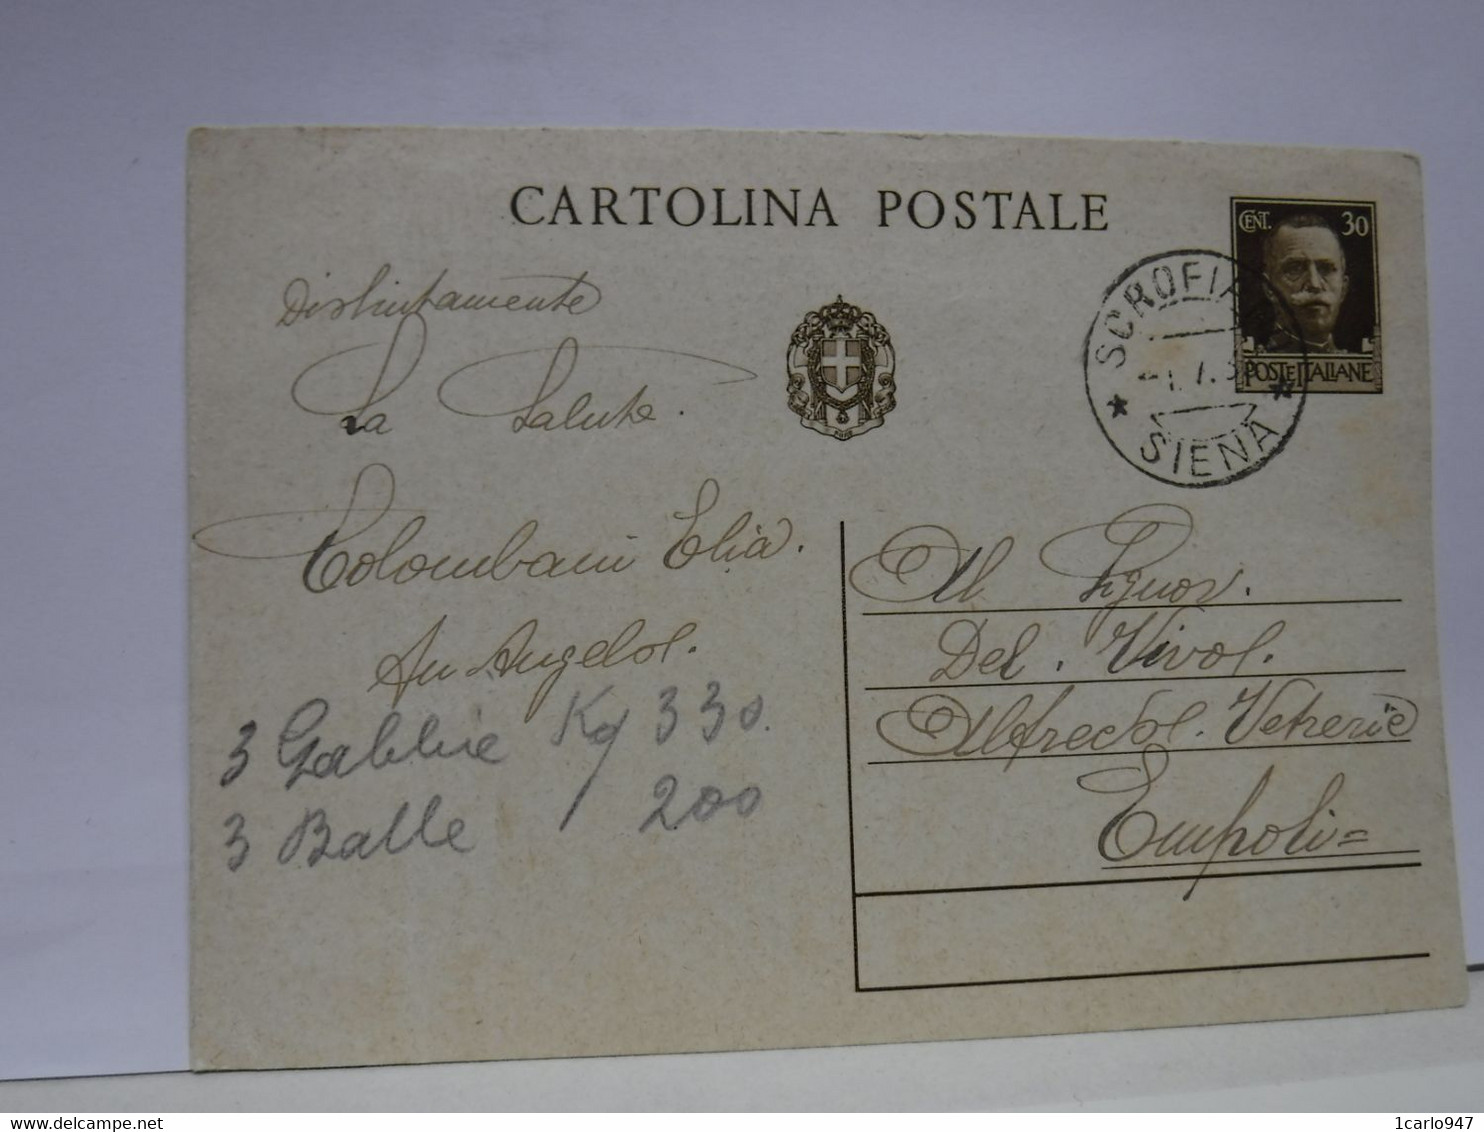 CARTOLINA POSTALE
CENT. 30
POSTE ITALIANE
SCROFIA
1.7.3
SIENA
Distintamente
La Saluto.
Colombani Elia.
fu Angelo.
3 Gabbie Kg 330.
3 Balle 200
Al Signor.
Del. Vivo.
Alfredo. Vetrerie
Empoli=
delcampe.net
1carlo947